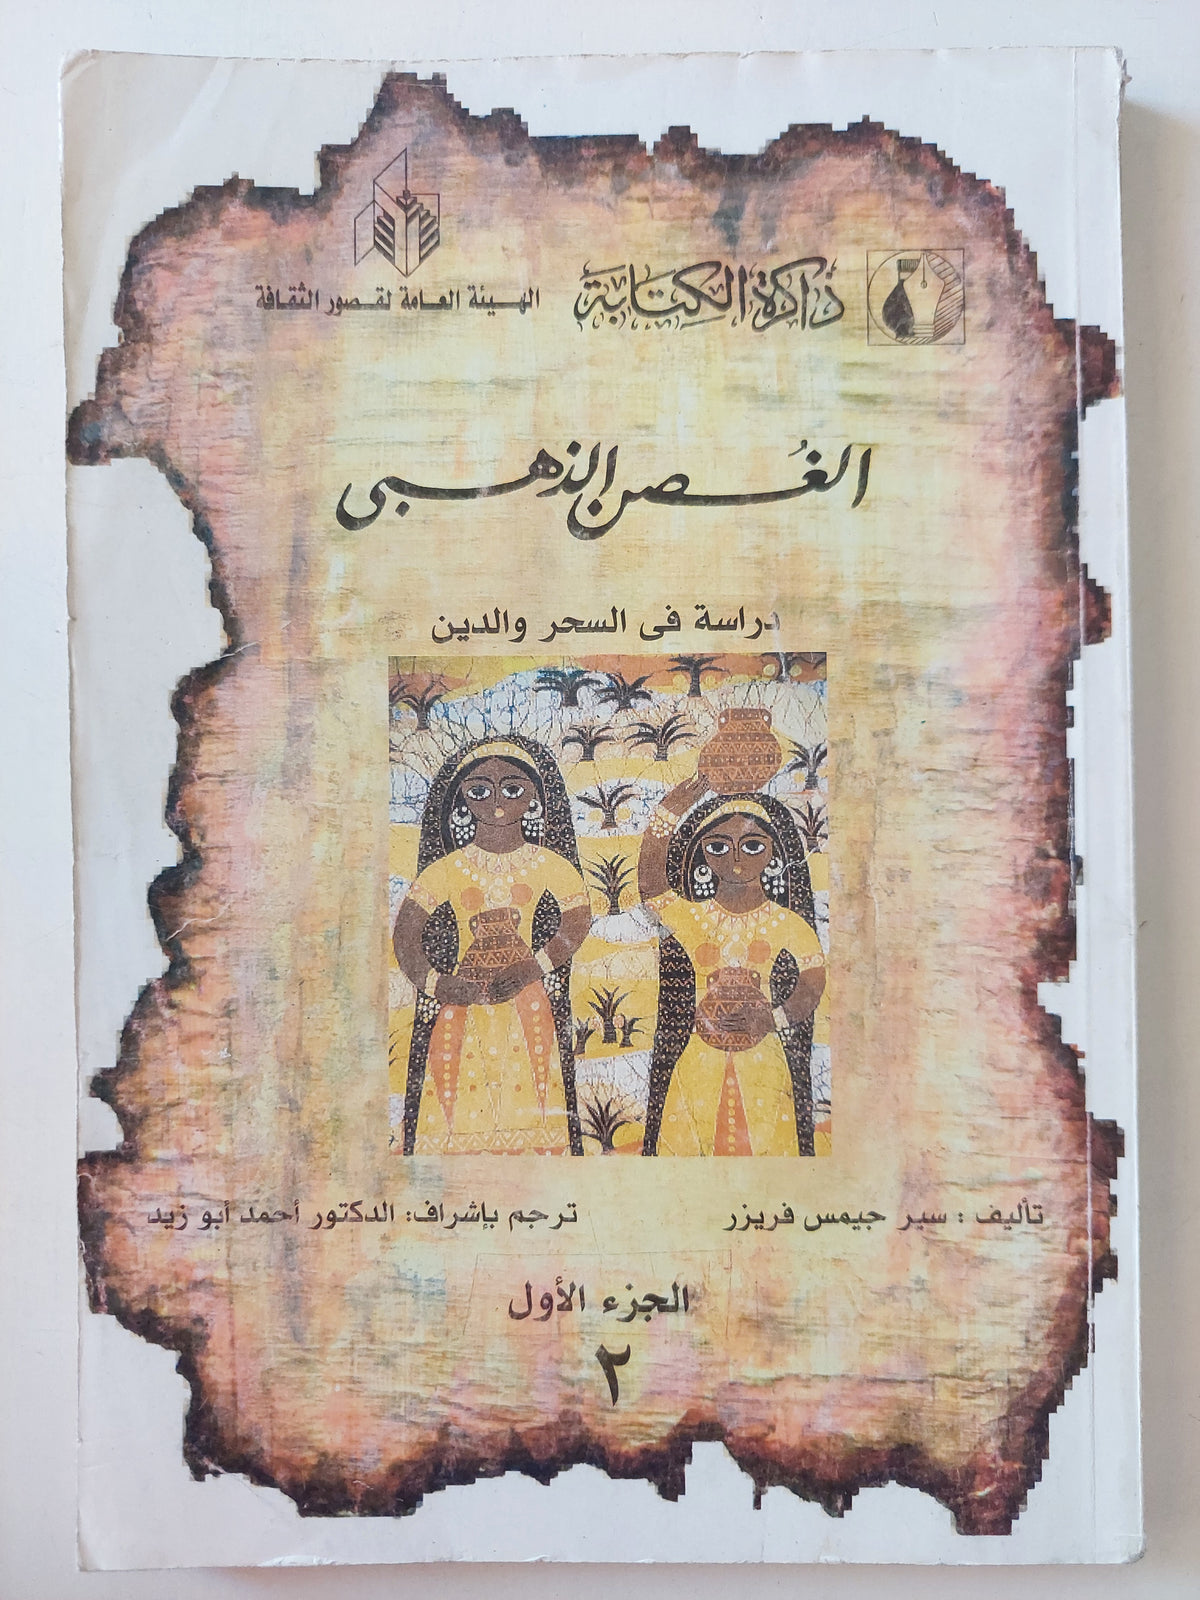 ذاكرة الكتابة
الهيئة العامة لقصور الثقافة
الغُصن الذهبى
دراسة فى السحر والدين
تأليف : سير جيمس فريزر
ترجم بإشراف: الدكتور أحمد أبو زيد
الجزء الأول
٢